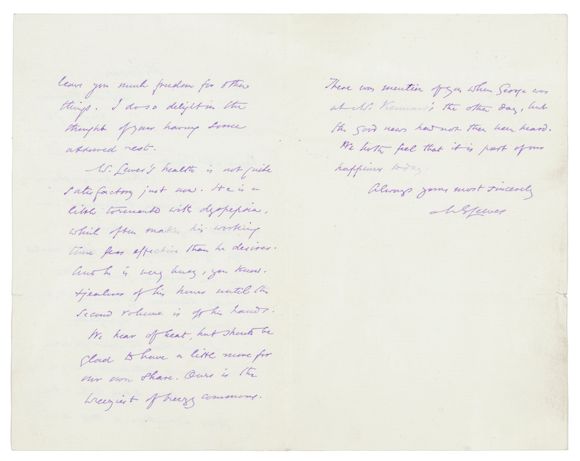 leave you much freedom for other
things. I do so delight in the
thought of your having some
assured rest.
Mr. Lewes's health is not quite
satisfactory just now. He is a
little tormented with dyspepsia,
which often makes his working
time less effective than he desires.
And he is very busy, you know,
& jealous of his hours until the
second volume is off his hands.
We hear of heat, but should be
glad to have a little more for
our own share. Ours is the
breeziest of breezy commons.
There was mention of you when George was
at Mr. the other day, but
the good news had not then been heard.
We both feel that it is part of our
happiness today.
Always yours most sincerely
M E Lewes